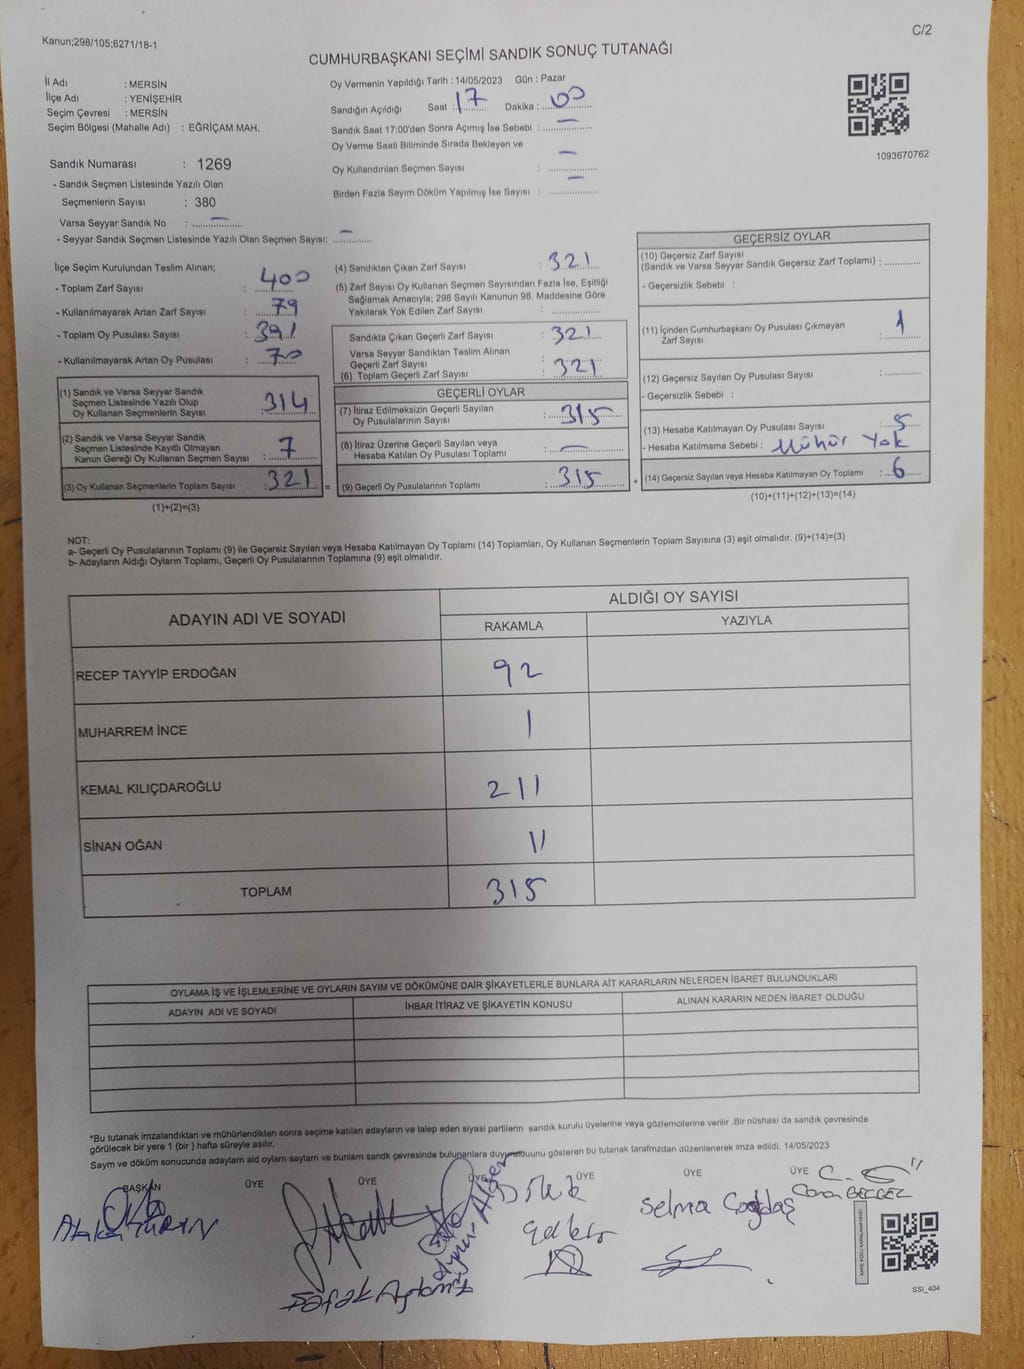 Kanun;298/105;6271/18-1
C/2
CUMHURBAŞKANI SEÇİMİ SANDIK SONUÇ TUTANAĞI
İl Adı : MERSİN
İlçe Adı : YENİŞEHİR
Seçim Çevresi : MERSİN
Seçim Bölgesi (Mahalle Adı) : EĞRİÇAM MAH.
Oy Vermenin Yapıldığı Tarih : 14/05/2023 Gün : Pazar
Sandığın Açıldığı Saat : 17 Dakika : 00
Sandık Saat 17:00'den Sonra Açımış İse Sebebi : —
Oy Verme Saati Bitiminde Sırada Bekleyen ve
Oy Kullandırılan Seçmen Sayısı : —
Birden Fazla Sayım Döküm Yapılmış İse Sayısı : —
1093670762
Sandık Numarası : 1269
- Sandık Seçmen Listesinde Yazılı Olan
Seçmenlerin Sayısı : 380
Varsa Seyyar Sandık No : —
- Seyyar Sandık Seçmen Listesinde Yazılı Olan Seçmen Sayısı: —
İlçe Seçim Kurulundan Teslim Alınan;
- Toplam Zarf Sayısı : 400
- Kullanılmayarak Artan Zarf Sayısı : 79
- Toplam Oy Pusulası Sayısı : 391
- Kullanılmayarak Artan Oy Pusulası : 70
(1) Sandık ve Varsa Seyyar Sandık
Seçmen Listesinde Yazılı Olup
Oy Kullanan Seçmenlerin Sayısı : 314
(2) Sandık ve Varsa Seyyar Sandık
Seçmen Listesinde Kayıtlı Olmayan
Kanun Gereği Oy Kullanan Seçmen Sayısı : 7
(3) Oy Kullanan Seçmenlerin Toplam Sayısı : 321 =
(1)+(2)=(3)
(4) Sandıktan Çıkan Zarf Sayısı : 321
(5) Zarf Sayısı Oy Kullanan Seçmen Sayısından Fazla İse, Eşitliği
Sağlamak Amacıyla; 298 Sayılı Kanunun 98. Maddesine Göre
Yakılarak Yok Edilen Zarf Sayısı :
Sandıkta Çıkan Geçerli Zarf Sayısı : 321
Varsa Seyyar Sandıktan Teslim Alınan
Geçerli Zarf Sayısı :
(6) Toplam Geçerli Zarf Sayısı 321
GEÇERLİ OYLAR
(7) İtiraz Edilmeksizin Geçerli Sayılan
Oy Pusulalarının Sayısı : 315
(8) İtiraz Üzerine Geçerli Sayılan veya
Hesaba Katılan Oy Pusulası Toplamı : —
(9) Geçerli Oy Pusulalarının Toplamı : 315 +
GEÇERSİZ OYLAR
(10) Geçersiz Zarf Sayısı
(Sandık ve Varsa Seyyar Sandık Geçersiz Zarf Toplamı) :
- Geçersizlik Sebebi :
(11) İçinden Cumhurbaşkanı Oy Pusulası Çıkmayan
Zarf Sayısı : 1
(12) Geçersiz Sayılan Oy Pusulası Sayısı :
- Geçersizlik Sebebi :
(13) Hesaba Katılmayan Oy Pusulası Sayısı : 5
- Hesaba Katılmama Sebebi : Mühür Yok
(14) Geçersiz Sayılan veya Hesaba Katılmayan Oy Toplamı : 6
(10)+(11)+(12)+(13)=(14)
NOT:
a- Geçerli Oy Pusulalarının Toplamı (9) ile Geçersiz Sayılan veya Hesaba Katılmayan Oy Toplamı (14) Toplamları, Oy Kullanan Seçmenlerin Toplam Sayısına (3) eşit olmalıdır. (9)+(14)=(3)
b- Adayların Aldığı Oyların Toplamı, Geçerli Oy Pusulalarının Toplamına (9) eşit olmalıdır.
ADAYIN ADI VE SOYADI
ALDIĞI OY SAYISI
RAKAMLA
YAZIYLA
RECEP TAYYİP ERDOĞAN 92
MUHARREM İNCE 1
KEMAL KILIÇDAROĞLU 211
SİNAN OĞAN 11
TOPLAM 315
OYLAMA İŞ VE İŞLEMLERİNE VE OYLARIN SAYIM VE DÖKÜMÜNE DAİR ŞİKAYETLERLE BUNLARA AİT KARARLARIN NELERDEN İBARET BULUNDUKLARI
ADAYIN ADI VE SOYADI
İHBAR İTİRAZ VE ŞİKAYETİN KONUSU
ALINAN KARARIN NEDEN İBARET OLDUĞU
*Bu tutanak imzalandıktan ve mühürlendikten sonra seçime katılan adayların ve talep eden siyasi partilerin sandık kurulu üyelerine veya gözlemcilerine verilir .Bir nüshası da sandık çevresinde
görülecek bir yere 1 (bir ) hafta süreyle asılır.
Sayım ve döküm sonucunda adaylarn ald oylarn saylarn ve bunlarn sandk çevresinde bulunanlara duyurulduunu gösteren bu tutanak tarafmzdan düzenlenerek imza edildi. 14/05/2023
BAŞKAN ÜYE ÜYE ÜYE ÜYE ÜYE
Selma Çağdaş
SSI_404